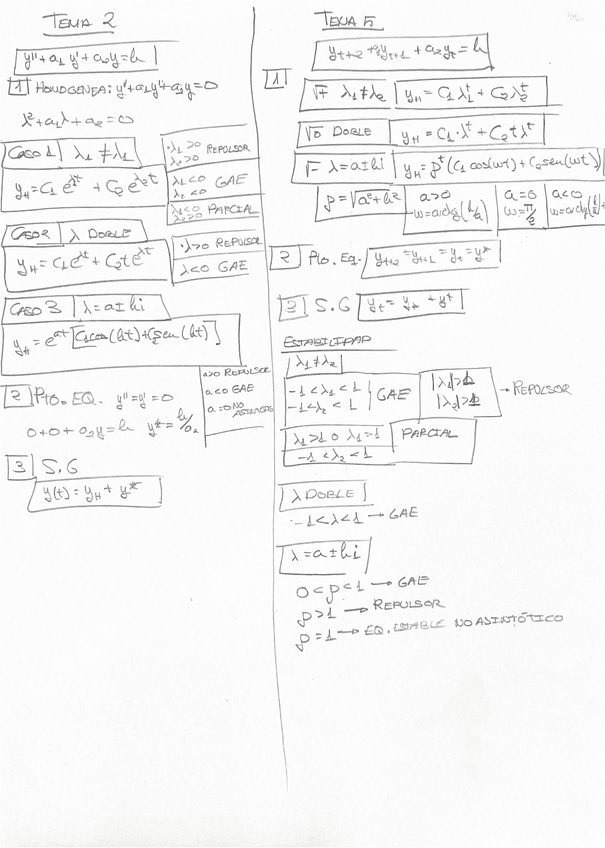 TEMA 2
y'' + a1 y' + a2y = h
1 HOMOGENEA: y'' + a1y' + a2y = 0
λ² + a1λ + a2 = 0
CASO 1 λ1 ≠ λ1
yH = C1 e^λt + C2 e^λ2t
· λ1 > 0 REPULSOR
λ2 > 0
λ1 < 0 GAE
λ2 < 0
λ1 < 0 PARCIAL
λ2 > 0
CASO 2 λ DOBLE
yH = C1 e^λt + C2 t e^λt
· λ > 0 REPULSOR
λ < 0 GAE
CASO 3 λ = a ± bi
yH = e^at [C1 cos(bt) + C2 sen(bt)]
a>0 REPULSOR
a<0 GAE
a=0 NO
ASINTOTICO
2 PTO. EQ. y'' = y' = 0
0 + 0 + a2y = h y* = h/a2
3 S.G
y(t) = yH + y*
TEMA 5
yt+2 + a1yt+1 + a2yt = h
1
√+ λ1 ≠ λ2 yH = C1 λ1^t + C2 λ2^t
√0 DOBLE yH = C1 · λ^t + C2 t λ^t
√- λ = a ± bi yH = ρ^t (C1 cos(ωt) + C2 sen(ωt))
ρ = √a² + b²
a > 0
a = 0
ω = π/2
a < 0
2 Pto. Eq. yt+2 = yt+1 = yt = y*
3 S.G yt = yH + y*
ESTABILIDAD
λ1 ≠ λ2
-1 < λ1 < 1
-1 < λ2 < 1 GAE
|λ1| > 1
|λ2| > 1 → REPULSOR
λ1 > 1 O λ1 = 1 PARCIAL
-1 < λ2 < 1
λ DOBLE
-1 < λ < 1 → GAE
λ = a ± bi
0 < ρ < 1 → GAE
ρ > 1 → REPULSOR
ρ = 1 → EQ. ESTABLE NO ASINTÓTICO